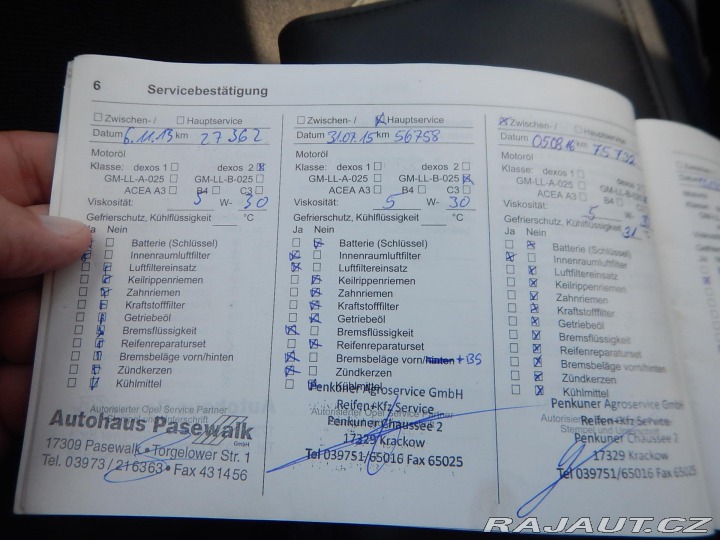 6 Servicebestätigung
Zwischen- / Hauptservice
Datum 6.11.13 km 27362
Motoröl
Klasse: dexos 1 dexos 2
GM-LL-A-025 GM-LL-B-025
ACEA A3 B4 C3
Viskosität: 5 W- 30
Gefrierschutz, Kühlflüssigkeit °C
Ja Nein
Batterie (Schlüssel)
Innenraumluftfilter
Luftfiltereinsatz
Keilrippenriemen
Zahnriemen
Kraftstofffilter
Getriebeöl
Bremsflüssigkeit
Reifenreparaturset
Bremsbeläge vorn/hinten
Zündkerzen
Kühlmittel
Autorisierter Opel Service Partner
Autohaus Pasewalk
17309 Pasewalk • Torgelower Str. 1
Tel. 03973 / 216363 • Fax 431456
Zwischen- / Hauptservice
Datum 31.07.15 km 56758
Motoröl
Klasse: dexos 1 dexos 2
GM-LL-A-025 GM-LL-B-025
ACEA A3 B4 C3
Viskosität: 5 W- 30
Gefrierschutz, Kühlflüssigkeit °C
Ja Nein
Batterie (Schlüssel)
Innenraumluftfilter
Luftfiltereinsatz
Keilrippenriemen
Zahnriemen
Kraftstofffilter
Getriebeöl
Bremsflüssigkeit
Reifenreparaturset
Bremsbeläge vorn/hinten +BS
Zündkerzen
Kühlmittel
Penkuner Agroservice GmbH
Reifen+Kfz Service
Autorisierter Opel Service Partner
Penkuner Chaussee 2
17329 Krackow
Tel 039751/65016 Fax 65025
Zwischen- / Hauptservice
Datum 050816 km 75732
Motoröl
Klasse: dexos 1 dexos 2
GM-LL-A-025
ACEA A3 B4
Viskosität: 5 W-
Gefrierschutz, Kühlflüssigkeit 31 °C
Ja Nein
Batterie (Schlüssel)
Innenraumluftfilter
Luftfiltereinsatz
Keilrippenriemen
Zahnriemen
Kraftstofffilter
Getriebeöl
Bremsflüssigkeit
Reifenreparaturset
Bremsbeläge vorn/hinten
Zündkerzen
Kühlmittel
Penkuner Agroservice GmbH
Reifen+Kfz Service
Penkuner Chaussee 2
17329 Krackow
Tel 039751/65016 Fax 65025
RAJAUT.CZ